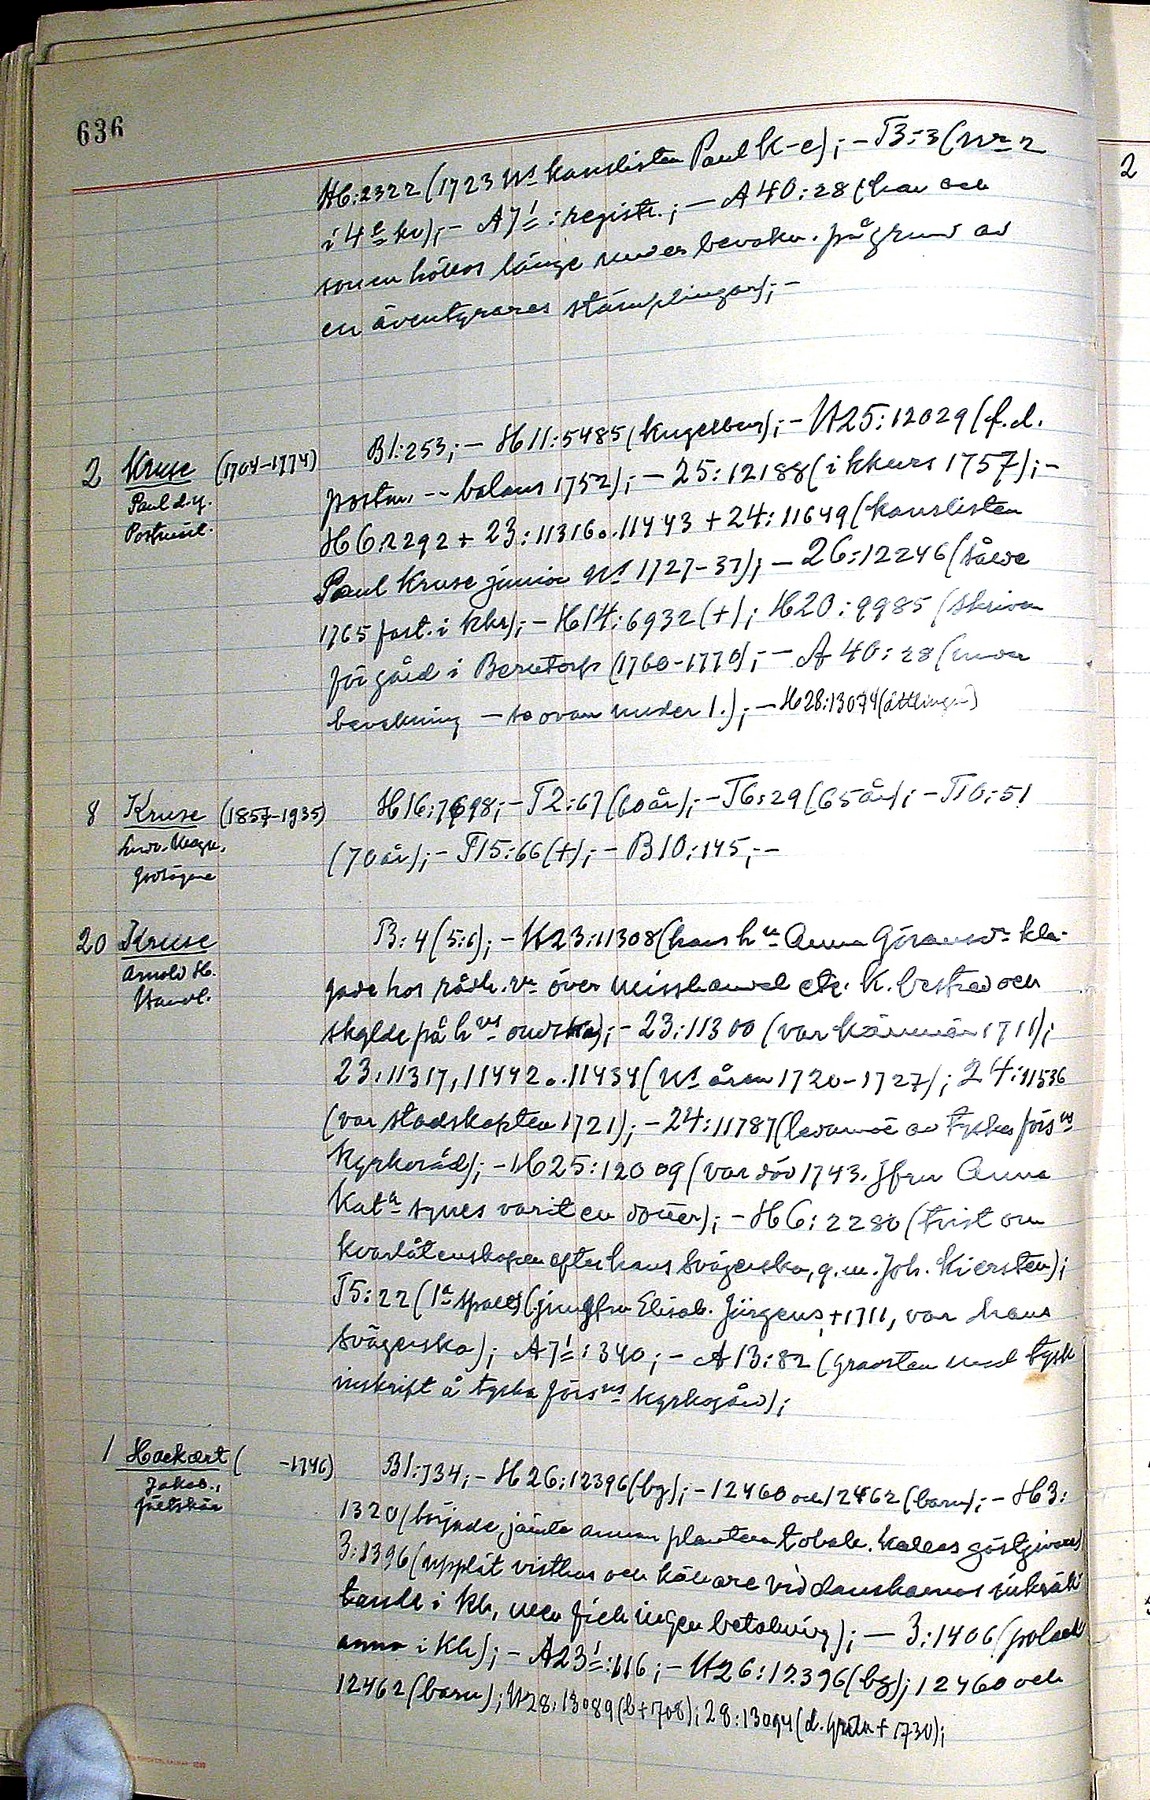 636
H6:2322 (1723 Ns kanslisten Paul K-e); - T3:3 (Nr 2
i 4e kv); - A7:1: registr.; - A40:28 (han och
sonen hölles länge under bevakn. på grund av
en äventyrares stämplingar); -
2 Kruse (1704-1774) B1:253; - H11:5485 (Kugelberg); - H25:12029 (f.d.
Paul d.y. postm. -- balans 1752); - 25:12188 (i kkurs 1757); -
Postinsp. H6:2292 + 23:11316 o. 11443 + 24:11649 (kanslisten
Paul Kruse junior Ns 1727-37); - 26:12246 (sålde
1765 fast. i Khn); - H14:6932 (+); H20:9985 (skriven
för gård i Berntorp (1760-1770); - A40:28 (under
bevakning - se ovan under 1.); - H28:13074 (ättlingar)
8 Kruse (1857-1935) H16:7698; - T2:67 (60 år); - T6:29 (65 år); - T10:51
Ludv. Magn. (70 år); - T15:66 (+); - B10:145; --
Godsägare
20 Kruse B:4 (5:6); - H23:11308 (hans hu Anna Göransdr kla-
Arnold H. gade hos rådh.rn över misshandel etc. K. bestred och
Handl. skylde på hus ondska); - 23:11300 (var kämnär 1711);
23:11317, 11442 o. 11434 (Ns åren 1720-1727); 24:11536
(var stadskapten 1721); - 24:11787 (ledamot av tyska förs:s
kyrkoråd); - H25:12009 (var död 1743. Jfru Anna
Kata synes varit en dotter); - H6:2280 (tvist om
kvarlåtenskapen efter hans svägerska, g.m. Joh. Kiersten);
T5:22 (1a spalt) (jungfru Elisab. Jürgens, +1711, var hans
svägerska); A7:1:340; - A13:82 (gravsten med tysk
inskrift å tyska förs:ns kyrkogård);
1 Hackert ( -1746) B1:734; - H26:12396 (bg); - 12460 och 12462 (barn); - H3:
Jakob, 1320 (började, jämte annan plantera tobak. Kallas gästgivare)
Fältskär 3:1396 (upplät visthus och källare vid danskarnas inkräk-
tande i Kh, men fick ingen betalning); - 3:1406 (
i Kh); - A23:1:116; - H26:12396 (bg); 12460 och
12462 (barn); H28:13089 (b +708); 28:13094 (d. + 1730);
2